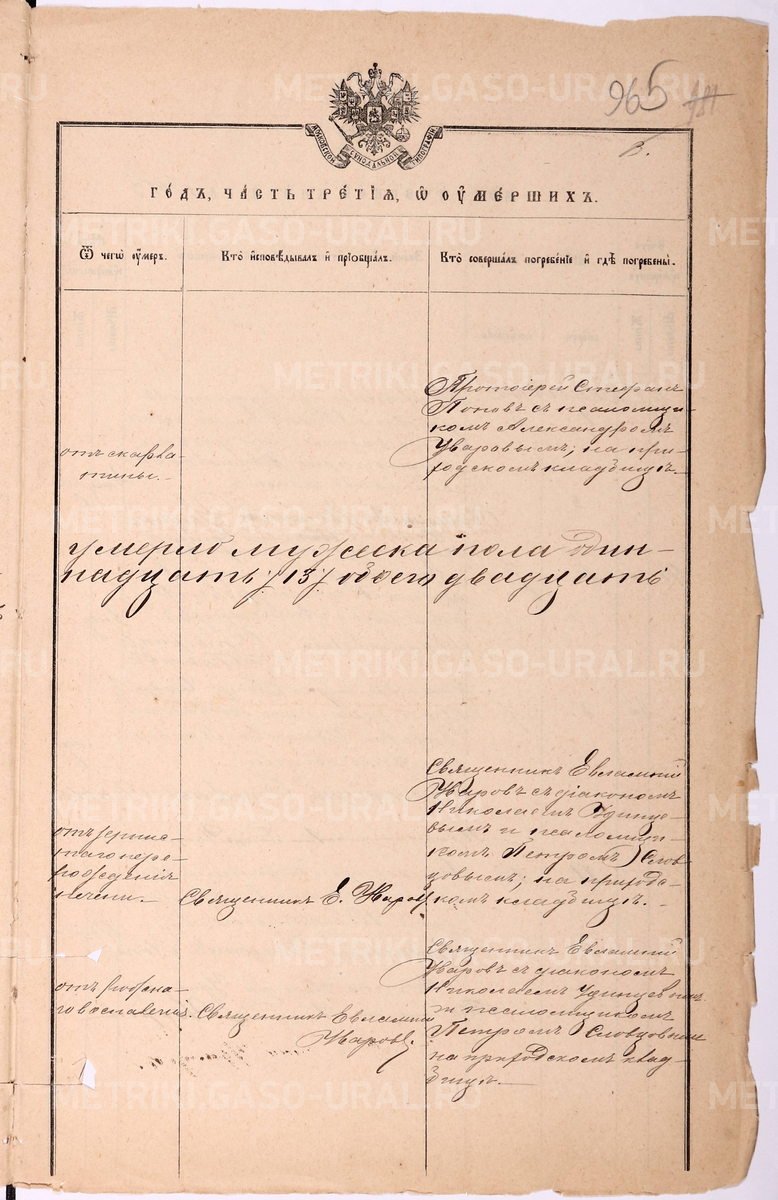 965
МОСКОВСКОЙ СѴНОДАЛЬНОЙ ТИПОГРАФІИ
ГОДЪ, ЧАСТЬ ТРЕТІѦ, Ѡ ОУМЕРШИХЪ.
Ѿ чегѡ оумеръ.
Кто исповѣдывалъ и пріобщалъ.
Кто совершалъ погребеніе и гдѣ погребены.
отъ скарла-
тины.
Протоіерей Стефанъ
Поповъ съ псаломщи-
комъ Александромъ
Уваровымъ; на при-
ходскомъ кладбищѣ.
умерло мужеска пола
надцать /13/ обоего двадцать
перерождения
печени.
Священникъ Е. Уваровъ
Священникъ Евлампій
Уваровъ съ діакономъ
Николаемъ Удинце-
вымъ и псаломщи-
комъ Петромъ Слов-
цовымъ; на приходс-
комъ кладбищѣ.
воспаленія.
Священникъ Евлампій
Уваровъ.
Священникъ Евлампій
Уваровъ съ діакономъ
Николаемъ Удинцевымъ
и псаломщикомъ
Петромъ Словцовымъ
на приходскомъ клад-
бищѣ.
METRIKI.GASO-URAL.RU